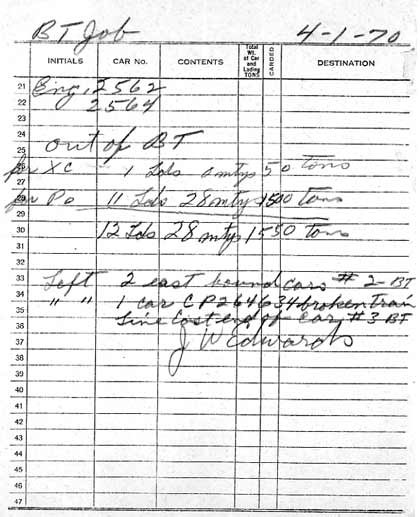 BT Job 4-1-70
INITIALS CAR No. CONTENTS Total Wt. of Car and Lading TONS CARDED DESTINATION
21 Eng. 2562
22 2564
23
24 out of BT
25
26 for XC 1 Lds 0 mtys 50 tons
27
28 for Po 11 Lds 28 mtys 1500 tons
29
30 12 Lds 28 mtys 1550 tons
31
32
33 Left 2 east bound cars #2-BT
34 " " 1 car CP264634 broken train
35 line east end of car #3 BT
36 J W Edwards
37
38
39
40
41
42
43
44
45
46
47